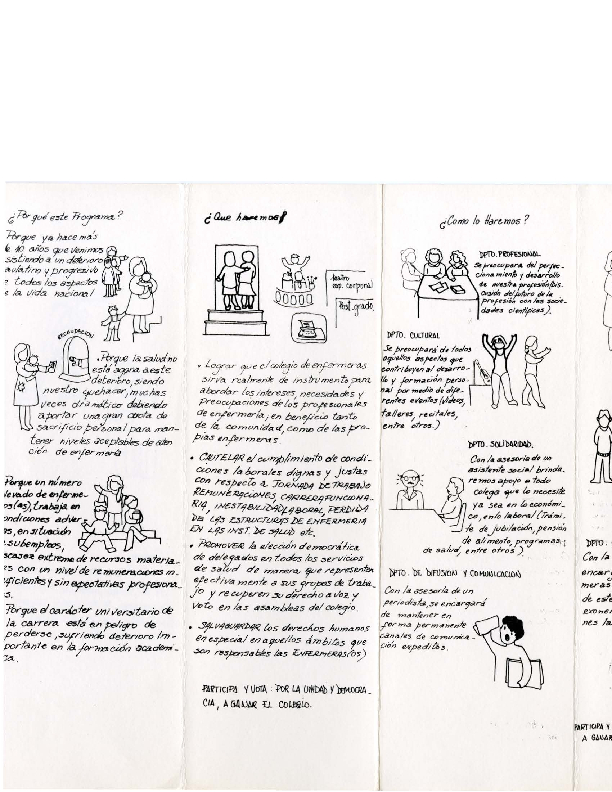 ¿Por qué este Programa?
Porque ya hace más
de 10 años que venimos
sistiendo a un deterioro
aulatiro y progresivo
e todos los aspectos
e la vida nacional
RECAUDACION
. Porque la salud no
está agena a este
deterioro, siendo
nuestro quehacer, muchas
veces dramático debiendo
aportar una gran cuota de
sacrificio personal para man-
tener niveles aceptables de aten
ción de enfermería
Porque un número
levado de enferme-
os(as), trabaja en
ondiciones adver
as, en situación
subempleos,
scasez extrema de recursos materia-
es con un nivel de remuneraciones in-
uficientes y sin expectativas profesiona-
s.
Porque el carácter universitario de
la carrera está en peligro de
perderse, sufriendo deterioro im-
portante en la formación académi-
ca.
¿Que haremos?
teatro
exp. corporal
Post_grado
• Lograr que el colegio de enfermeras
sirva realmente de instrumento para
abordar los intereses, necesidades y
preocupaciones de los profesionales
de enfermería; en beneficio tanto
de la comunidad, como de las pro-
pias enfermeras.
• CAUTELAR el cumplimiento de condi-
ciones laborales dignas y justas
con respecto a JORNADA DE TRABAJO
REMUNERACIONES, CARRERA FUNCIONA-
RIA, INESTABILIDAD LABORAL, PERDIDA
DE LAS ESTRUCTURAS DE ENFERMERIA
EN LAS INST. DE SALUD etc.
• PROMOVER la elección democrática
de delegados en todos los servicios
de salud de manera que representen
efectivamente a sus grupos de traba-
jo y recuperen su derecho a voz y
voto en las asambleas del colegio.
• SALVAGUARDAR los derechos humanos
en especial en aquellos ámbitos que
son responsables las ENFERMERAS(OS)
PARTICIPA Y VOTA: POR LA UNIDAD Y DEMOCRA-
CIA, A GANAR EL COLEGIO.
¿Como lo Haremos?
DPTO. PROFESIONAL
Se preocupará del perfec-
cionamiento y desarrollo
de nuestra profesión (fis.
del futuro de la
profesión con las socie-
dades científicas).
DPTO. CULTURAL
Se preocupará de todos
aquellos aspectos que
contribuyen al desarro-
llo y formación perso-
nal por medio de dife-
rentes eventos (videos,
talleres, recitales,
entre otros.)
DPTO. SOLIDARIDAD.
Con la asesoría de un
asistente social brinda.
remos apoyo a todo
colega que lo necesite
ya sea en lo económi-
co, en lo laboral (Trámi-
te de jubilación, pensión
de alimento, programas,
de salud, entre otros).
DPTO. DE DIFUSION Y COMUNICACION
Con la asesoría de un
periodista, se encargará
de mantener en
forma permanente
canales de comunica-
ción expeditos.
DPTO.
Con la
encar
meras
de este
exone
nes la
PARTICIPA Y
A GANAR